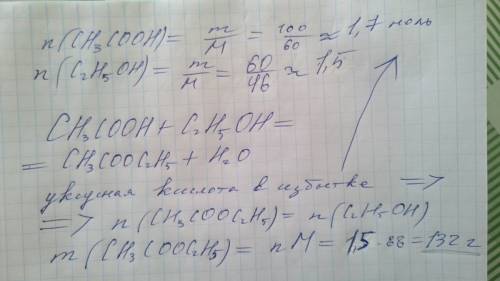 n(CH₃COOH) = m/M = 100/60 ≈ 1,7 моль
n(C₂H₅OH) = m/M = 60/46 ≈ 1,5
CH₃COOH + C₂H₅OH =
= CH₃COOC₂H₅ + H₂O
уксусная кислота в избытке =>
=> n(CH₃COOC₂H₅) = n(C₂H₅OH)
m(CH₃COOC₂H₅) = nM = 1,5·88 = 132 г